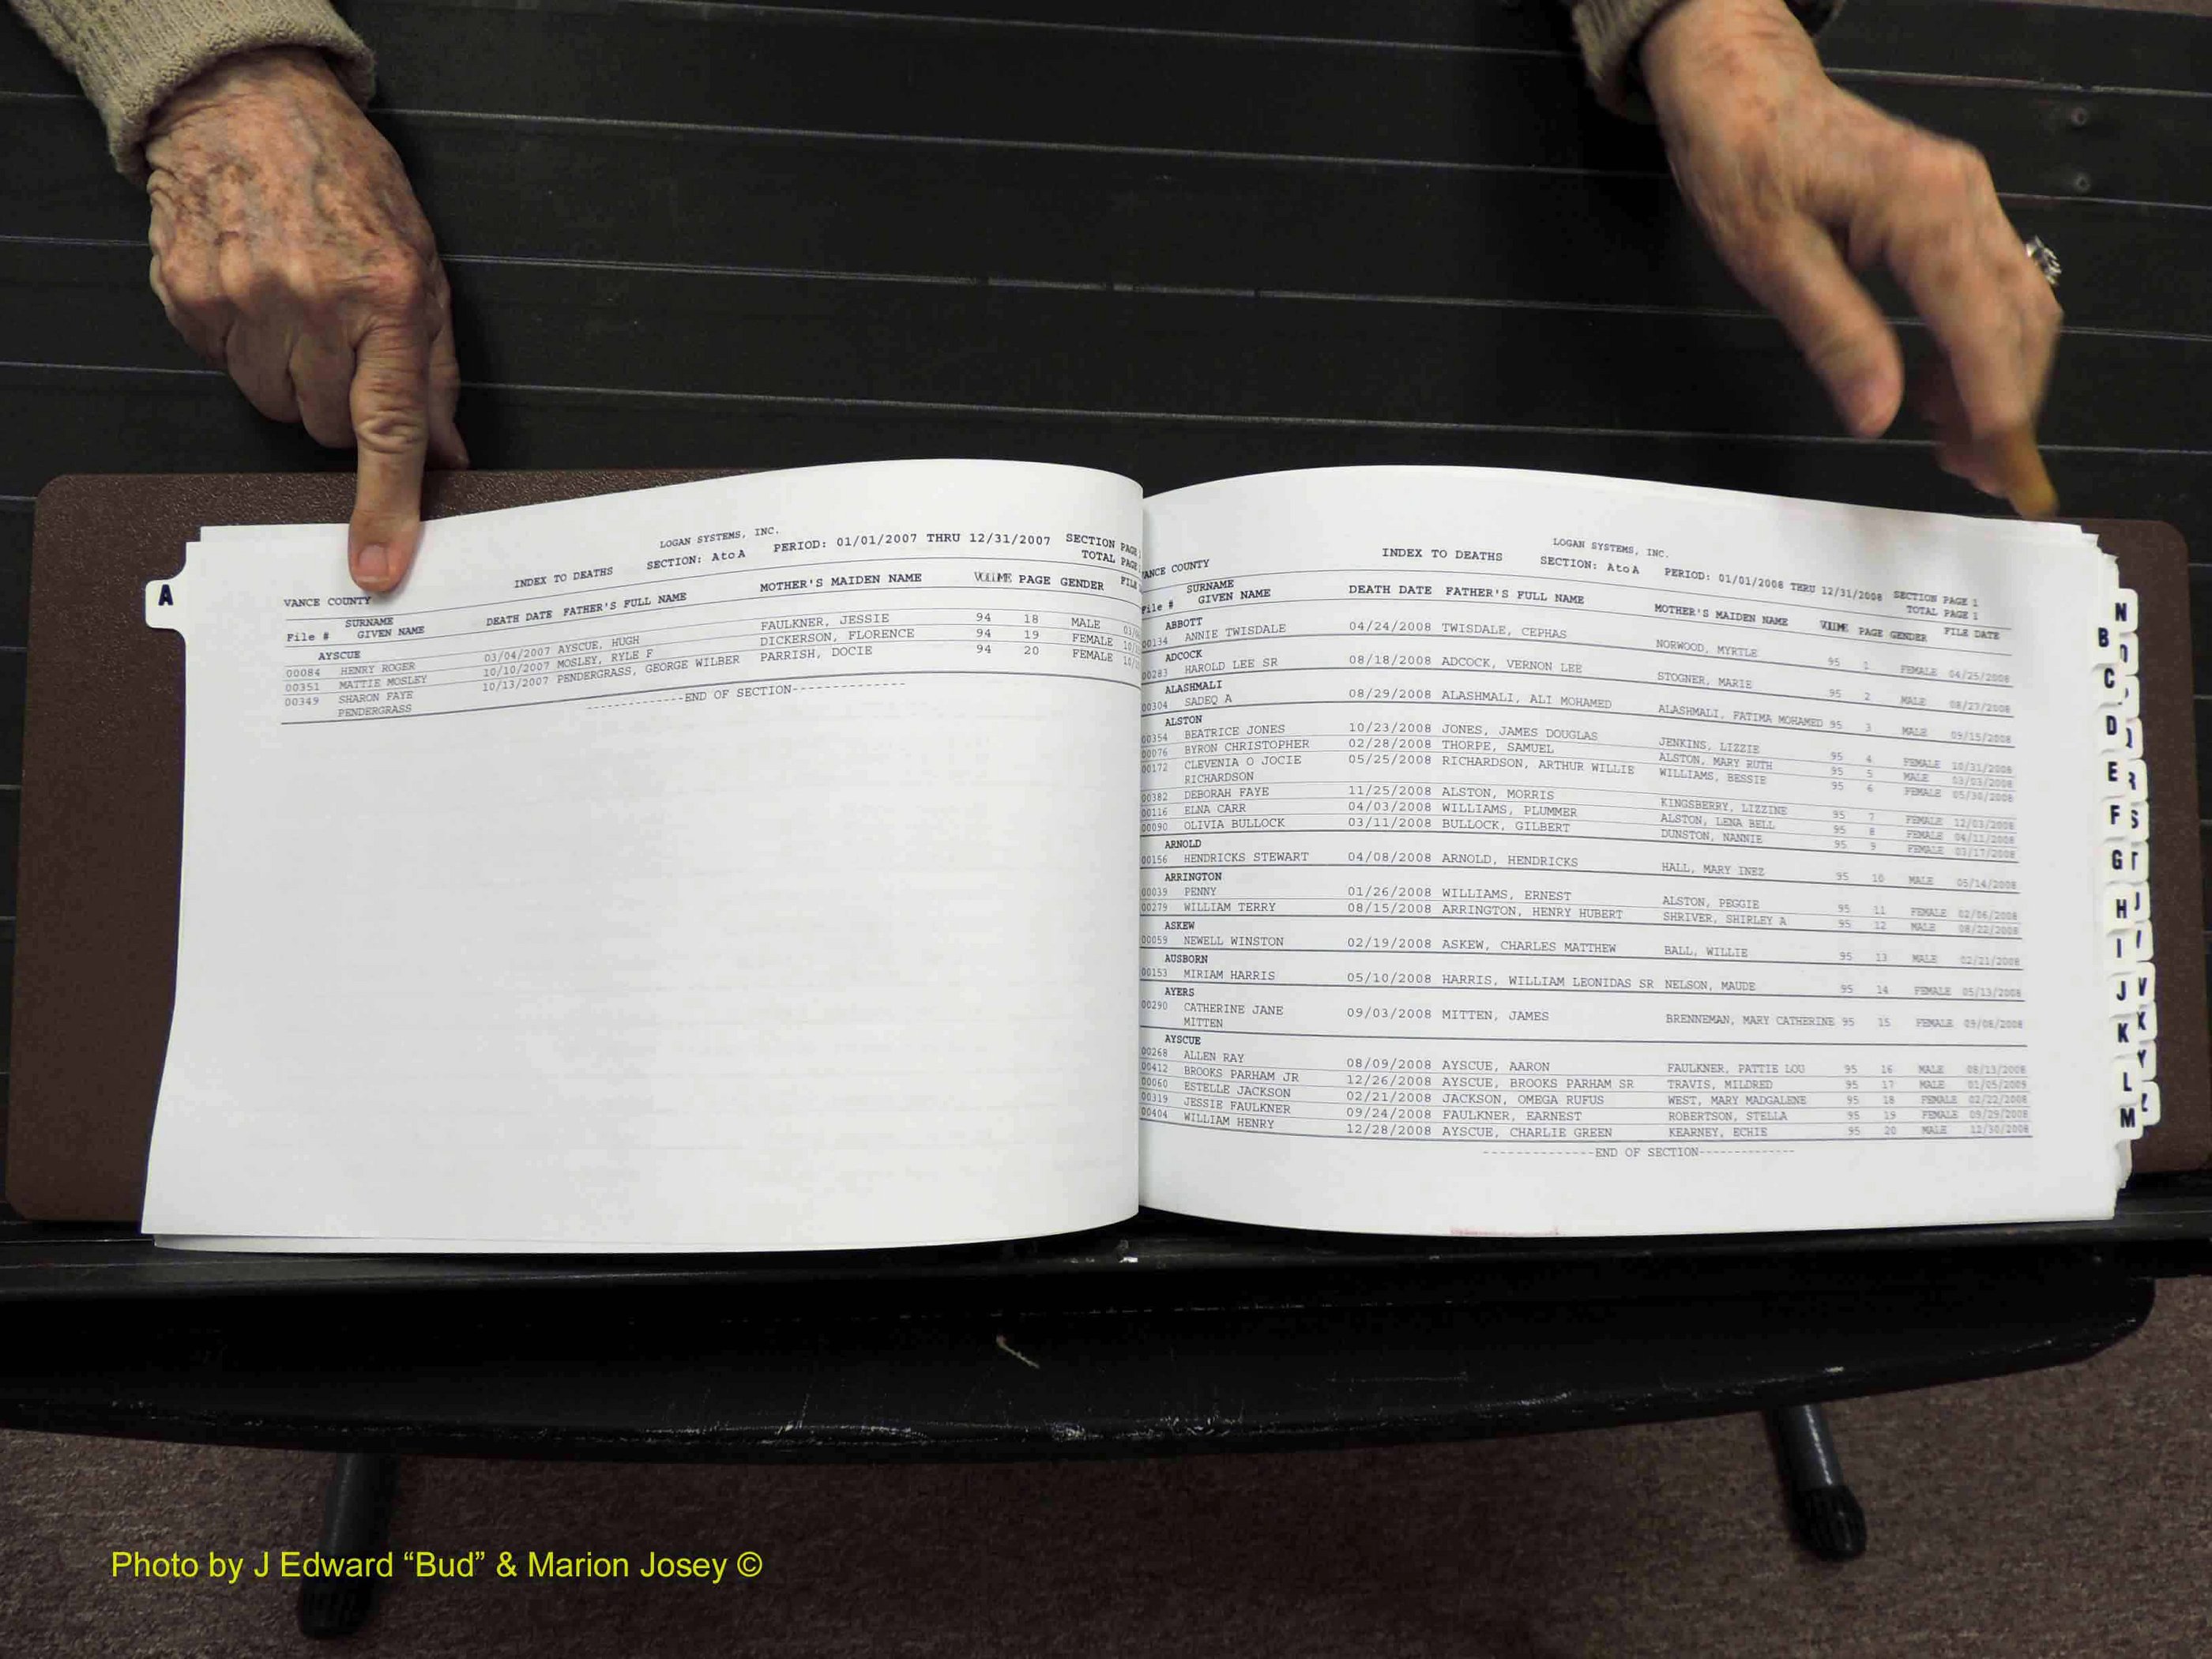 A
LOGAN SYSTEMS, INC.
VANCE COUNTY INDEX TO DEATHS SECTION: A to A PERIOD: 01/01/2007 THRU 12/31/2007 SECTION PAGE
TOTAL PAGE
SURNAME
File # GIVEN NAME DEATH DATE FATHER'S FULL NAME MOTHER'S MAIDEN NAME VOLUME PAGE GENDER FILE
AYSCUE
00084 HENRY ROGER 03/04/2007 AYSCUE, HUGH FAULKNER, JESSIE 94 18 MALE
00351 MATTIE MOSLEY 10/10/2007 MOSLEY, RYLE F DICKERSON, FLORENCE 94 19 FEMALE
00349 SHARON FAYE 10/13/2007 PENDERGRASS, GEORGE WILBER PARRISH, DOCIE 94 20 FEMALE
PENDERGRASS
END OF SECTION
LOGAN SYSTEMS, INC.
VANCE COUNTY INDEX TO DEATHS SECTION: A to A PERIOD: 01/01/2008 THRU 12/31/2008 SECTION PAGE 1
TOTAL PAGE 1
SURNAME
File # GIVEN NAME DEATH DATE FATHER'S FULL NAME MOTHER'S MAIDEN NAME VOLUME PAGE GENDER FILE DATE
ABBOTT
00134 ANNIE TWISDALE 04/24/2008 TWISDALE, CEPHAS NORWOOD, MYRTLE 95 1 FEMALE 04/25/2008
ADCOCK
00283 HAROLD LEE SR 08/18/2008 ADCOCK, VERNON LEE STOGNER, MARIE 95 2 MALE 08/27/2008
ALASHMALI
00304 SADEQ A 08/29/2008 ALASHMALI, ALI MOHAMED ALASHMALI, FATIMA MOHAMED 95 3 MALE 09/15/2008
ALSTON
00354 BEATRICE JONES 10/23/2008 JONES, JAMES DOUGLAS JENKINS, LIZZIE 95 4 FEMALE 10/31/2008
00076 BYRON CHRISTOPHER 02/28/2008 THORPE, SAMUEL ALSTON, MARY RUTH 95 5 MALE 03/03/2008
00172 CLEVENIA O JOCIE 05/25/2008 RICHARDSON, ARTHUR WILLIE WILLIAMS, BESSIE 95 6 FEMALE 05/30/2008
RICHARDSON
00382 DEBORAH FAYE 11/25/2008 ALSTON, MORRIS KINGSBERRY, LIZZINE 95 7 FEMALE 12/03/2008
00116 ELNA CARR 04/03/2008 WILLIAMS, PLUMMER ALSTON, LENA BELL 95 8 FEMALE 04/11/2008
00090 OLIVIA BULLOCK 03/11/2008 BULLOCK, GILBERT DUNSTON, NANNIE 95 9 FEMALE 03/17/2008
ARNOLD
00156 HENDRICKS STEWART 04/08/2008 ARNOLD, HENDRICKS HALL, MARY INEZ 95 10 MALE 05/14/2008
ARRINGTON
00039 PENNY 01/26/2008 WILLIAMS, ERNEST ALSTON, PEGGIE 95 11 FEMALE 02/06/2008
00279 WILLIAM TERRY 08/15/2008 ARRINGTON, HENRY HUBERT SHRIVER, SHIRLEY A 95 12 MALE 08/22/2008
ASKEW
00059 NEWELL WINSTON 02/19/2008 ASKEW, CHARLES MATTHEW BALL, WILLIE 95 13 MALE 02/21/2008
AUSBORN
00153 MIRIAM HARRIS 05/10/2008 HARRIS, WILLIAM LEONIDAS SR NELSON, MAUDE 95 14 FEMALE 05/13/2008
AYERS
00290 CATHERINE JANE 09/03/2008 MITTEN, JAMES BRENNEMAN, MARY CATHERINE 95 15 FEMALE 09/08/2008
MITTEN
AYSCUE
00268 ALLEN RAY 08/09/2008 AYSCUE, AARON FAULKNER, PATTIE LOU 95 16 MALE 08/13/2008
00412 BROOKS PARHAM JR 12/26/2008 AYSCUE, BROOKS PARHAM SR TRAVIS, MILDRED 95 17 MALE 01/05/2009
00060 ESTELLE JACKSON 02/21/2008 JACKSON, OMEGA RUFUS WEST, MARY MADGALENE 95 18 FEMALE 02/22/2008
00319 JESSIE FAULKNER 09/24/2008 FAULKNER, EARNEST ROBERTSON, STELLA 95 19 FEMALE 09/29/2008
00404 WILLIAM HENRY 12/28/2008 AYSCUE, CHARLIE GREEN KEARNEY, ECHIE 95 20 MALE 12/30/2008
--------------END OF SECTION-------------
N
B
C
D
E R
F S
G T
H
I
J V
K
Y
L Z
M
Photo by J Edward “Bud” & Marion Josey ©